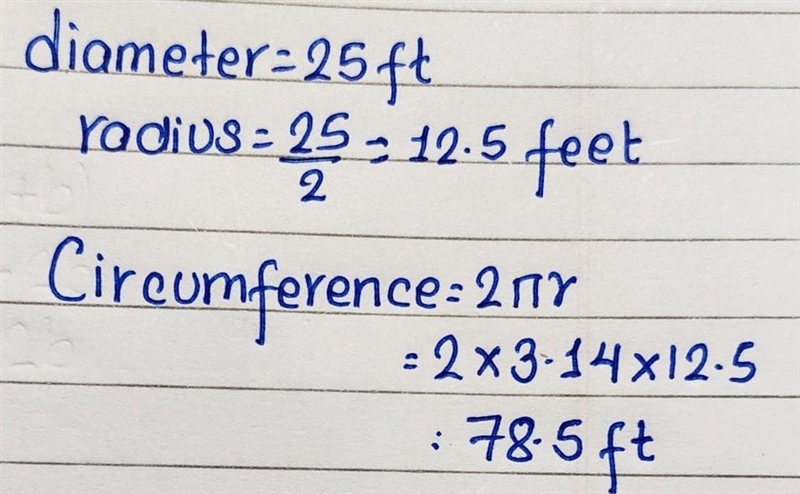 diameter=25ft
radius=25/2=12.5 feet
Circumference=2πr
=2×3.14×12.5
: 78.5 ft